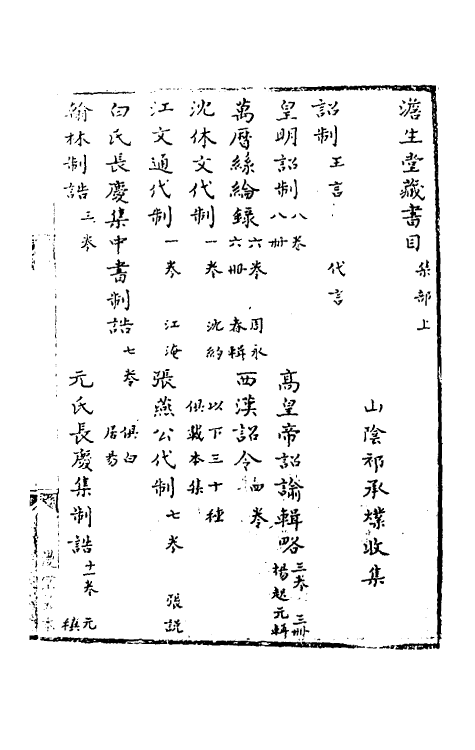 澹生堂藏書目 集部上
山陰祁承㸁收集
詔制 王言 代言
皇明詔制 八卷 八冊 高皇帝詔諭輯略 三卷 三冊 楊起元輯
萬曆絲綸錄 六卷 六冊 周永春輯 西漢詔令 四卷
沈休文代制 一卷 沈約 以下三十種俱載本集
江文通代制 一卷 江淹 張燕公代制 七卷 張說
白氏長慶集中書制誥 七卷 俱白居易
翰林制誥 三卷 元氏長慶集制誥 十一卷 元稹